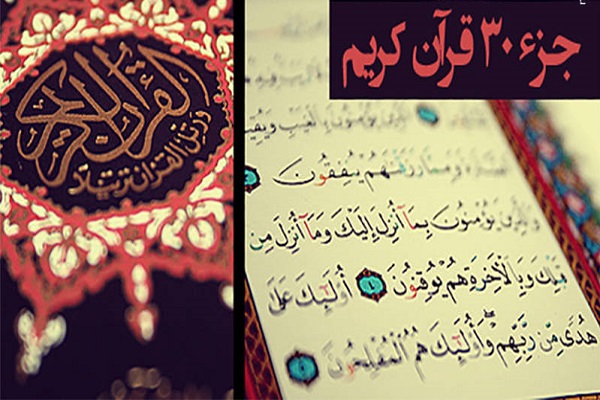 جزء ۳۰ قرآن کریم
القرآن الكريم
ورتل القرآن ترتيلا
يُؤْمِنُونَ بِالْغَيْبِ
وَمِمَّا رَزَقْنَاهُمْ يُنفِقُونَ
وَالَّذِينَ يُؤْمِنُونَ بِمَآ أُنزِلَ إِلَيْكَ وَمَآ أُنزِلَ مِن
قَبْلِكَ وَبِالْآخِرَةِ هُمْ يُوقِنُونَ ٤ أُولَٰٓئِكَ عَلَىٰ
هُدًى مِّن رَّبِّهِمْ ۖ وَأُولَٰٓئِكَ هُمُ الْمُفْلِحُونَ ٥